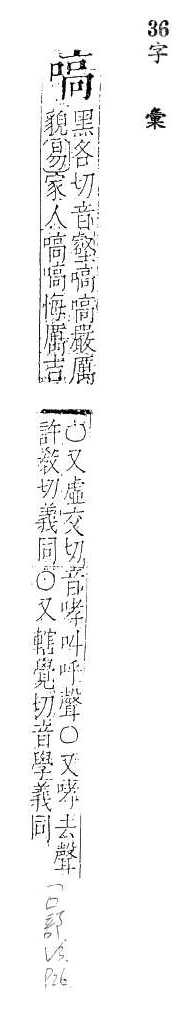 36
字彙
嗃
黑各切音壑嗃嗃嚴厲
貌易家人嗃嗃悔厲吉
○又虛交切音哮叫呼聲○又哮去聲
許教切義同○又轄覺切音學義同
口部
P26